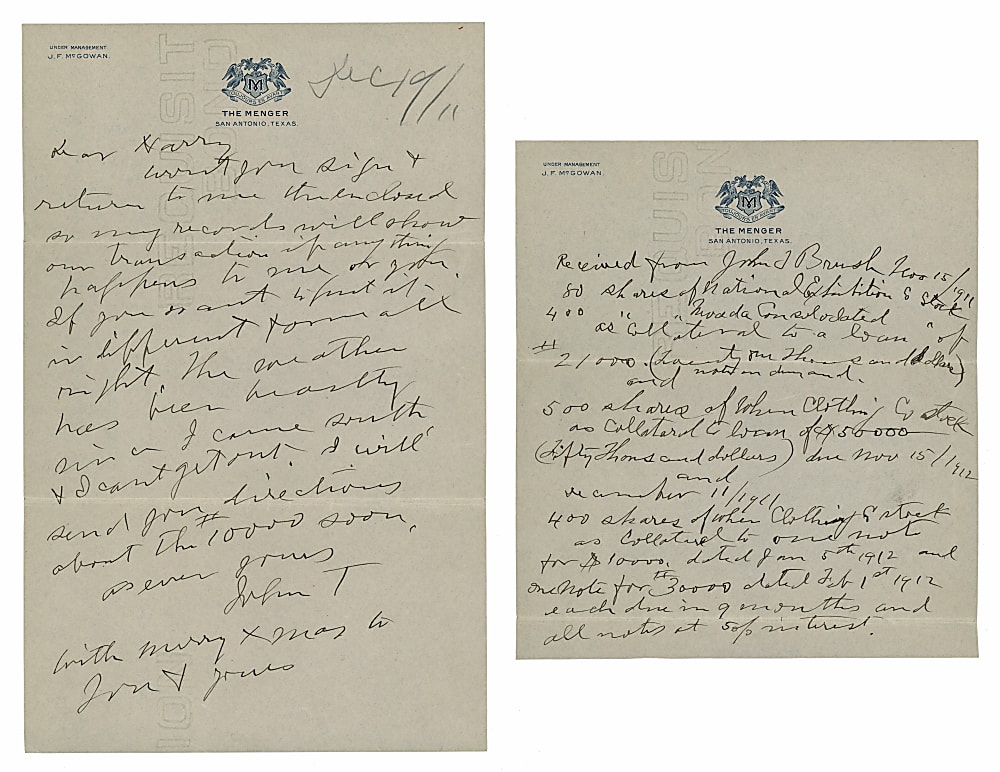 UNDER MANAGEMENT
J. F. McGOWAN.
M
TOUJOURS EN AVANT
THE MENGER
SAN ANTONIO, TEXAS.
Dec 19/11
Dear Harry
wont you sign &
return to me the enclosed
so my records will show
our transaction if anything
happens to me or you.
If you want to put it
in different form all
right. The weather
has been beastly
since I came south
& I cant get out. I will
send you directions
about the $10000 soon,
as ever yours
John T
with merry Xmas to
you & yours
UNDER MANAGEMENT
J. F. McGOWAN.
M
TOUJOURS EN AVANT
THE MENGER
SAN ANTONIO, TEXAS.
Received from John T Brush Nov 15/1911
80 shares of National Exhibition Co stock
400 " " Nevada Consolodated "
as Collateral to a loan of
$21000. (twenty one thousand dollars)
and note on demand.
500 shares of When Clothing Co stock
as Collateral to loan of $50000
(Fifty thousand dollars) due Nov 15/1912
and
december 11/1911
400 shares of When Clothing Co stock
as Collateral to one note
for $10000. dated Jan 5th 1912 and
one Note for $30000 dated Feb 1st 1912
each due in 9 months and
all notes at 5% interest.